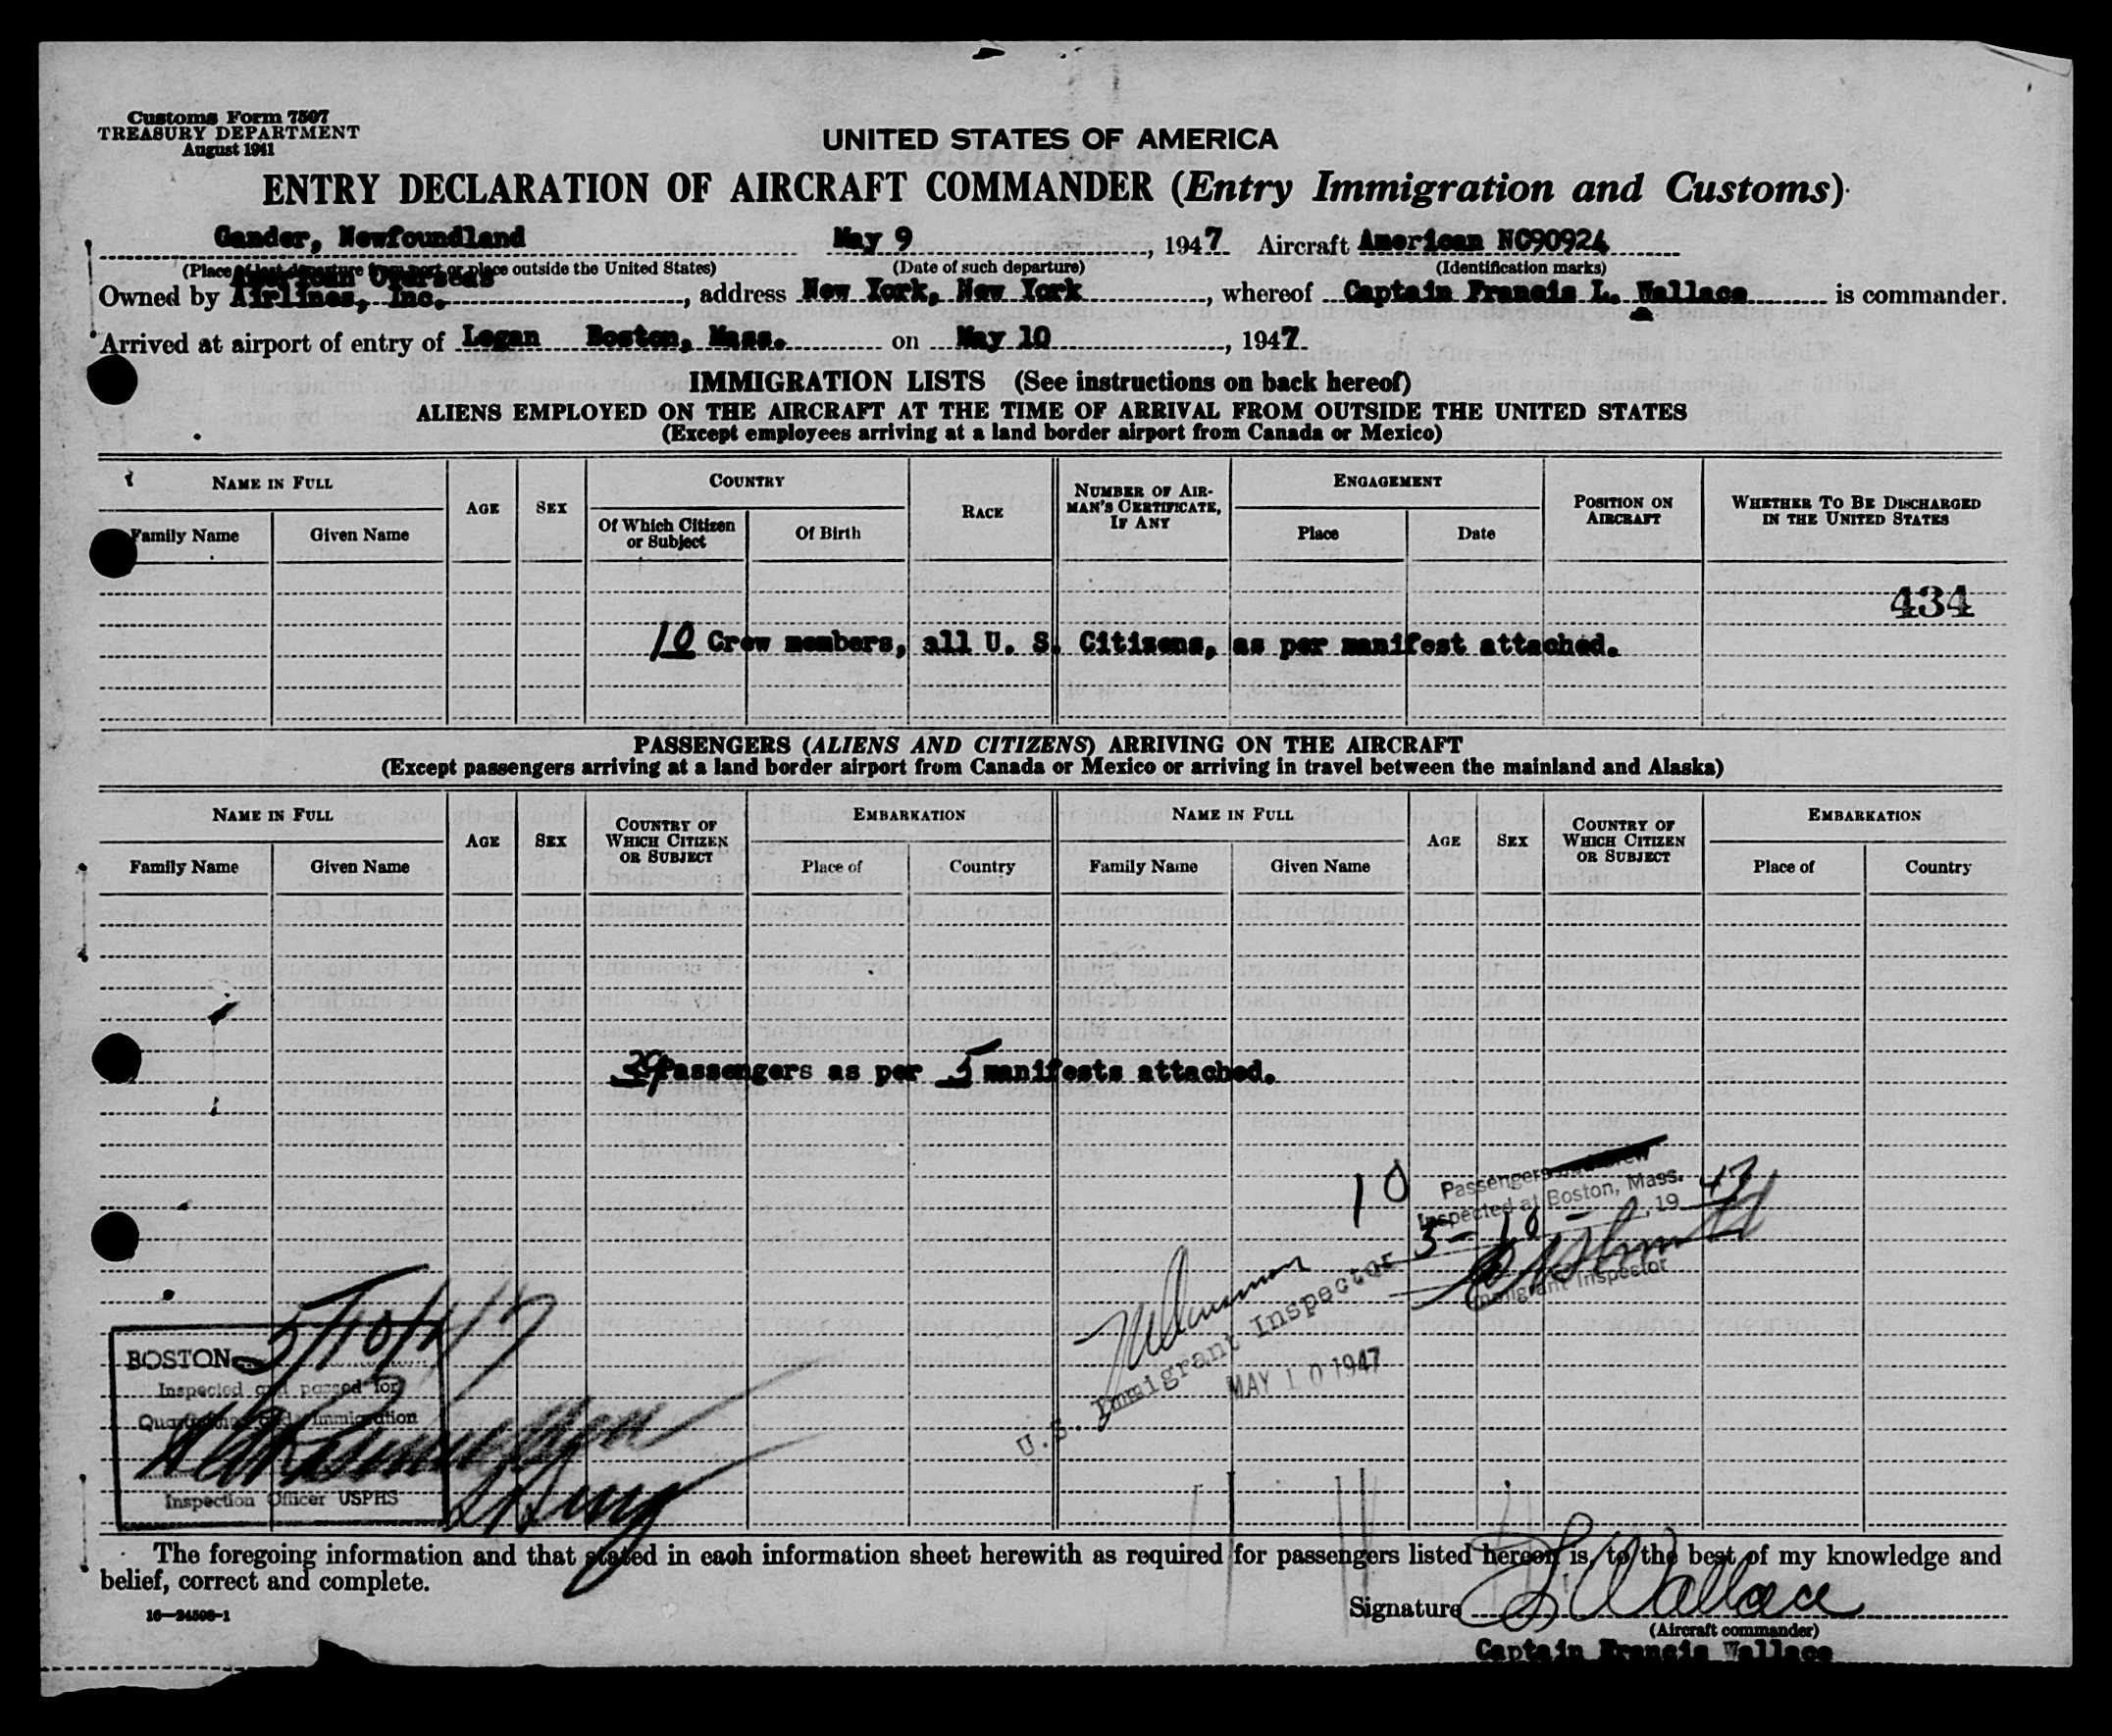 Customs Form 7507
TREASURY DEPARTMENT
August 1941
UNITED STATES OF AMERICA
ENTRY DECLARATION OF AIRCRAFT COMMANDER (Entry Immigration and Customs)
Gander, Newfoundland May 9, 1947 Aircraft American NC90924
(Place of last departure from port or place outside the United States) (Date of such departure) (Identification marks)
American Overseas
Owned by Airlines, Inc., address New York, New York, whereof Captain Francis L. Wallace is commander.
Arrived at airport of entry of Logan Boston, Mass. on May 10, 1947
IMMIGRATION LISTS (See instructions on back hereof)
ALIENS EMPLOYED ON THE AIRCRAFT AT THE TIME OF ARRIVAL FROM OUTSIDE THE UNITED STATES
(Except employees arriving at a land border airport from Canada or Mexico)
NAME IN FULL AGE SEX COUNTRY RACE NUMBER OF AIRMAN'S CERTIFICATE, IF ANY ENGAGEMENT POSITION ON AIRCRAFT WHETHER TO BE DISCHARGED IN THE UNITED STATES
Family Name Given Name Of Which Citizen or Subject Of Birth Place Date
434
10 Crew members, all U. S. Citizens, as per manifest attached.
PASSENGERS (ALIENS AND CITIZENS) ARRIVING ON THE AIRCRAFT
(Except passengers arriving at a land border airport from Canada or Mexico or arriving in travel between the mainland and Alaska)
NAME IN FULL AGE SEX COUNTRY OF WHICH CITIZEN OR SUBJECT EMBARKATION NAME IN FULL AGE SEX COUNTRY OF WHICH CITIZEN OR SUBJECT EMBARKATION
Family Name Given Name Place of Country Family Name Given Name Place of Country
Passengers as per 5 manifests attached.
10 Passengers and Crew
Inspected at Boston, Mass.
5-10-, 19 47
Immigrant Inspector
U.S. Immigrant Inspector
MAY 10 1947
BOSTON 5/10/47
Inspected and passed for
Quarantine and Immigration
Inspection Officer USPHS
The foregoing information and that stated in each information sheet herewith as required for passengers listed hereon is, to the best of my knowledge and
belief, correct and complete.
16—24508-1
Signature F L Wallace
(Aircraft commander)
Captain Francis Wallace